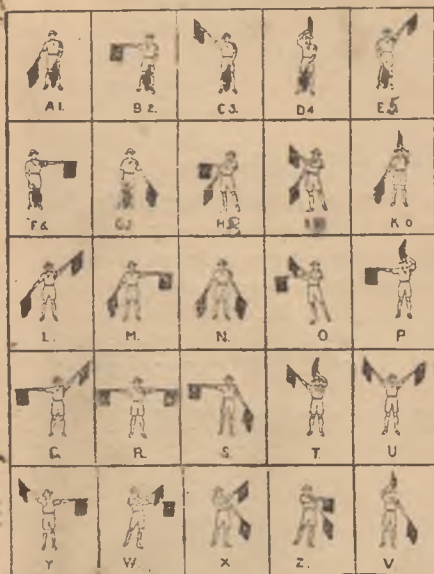 A 1. B 2. C 3. D 4 E 5
F 6. G J H 8 I K 0
L. M. N. O P
Q. R. S. T. U
Y W. X Z. V